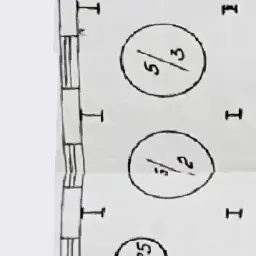 5/3
5/2
25